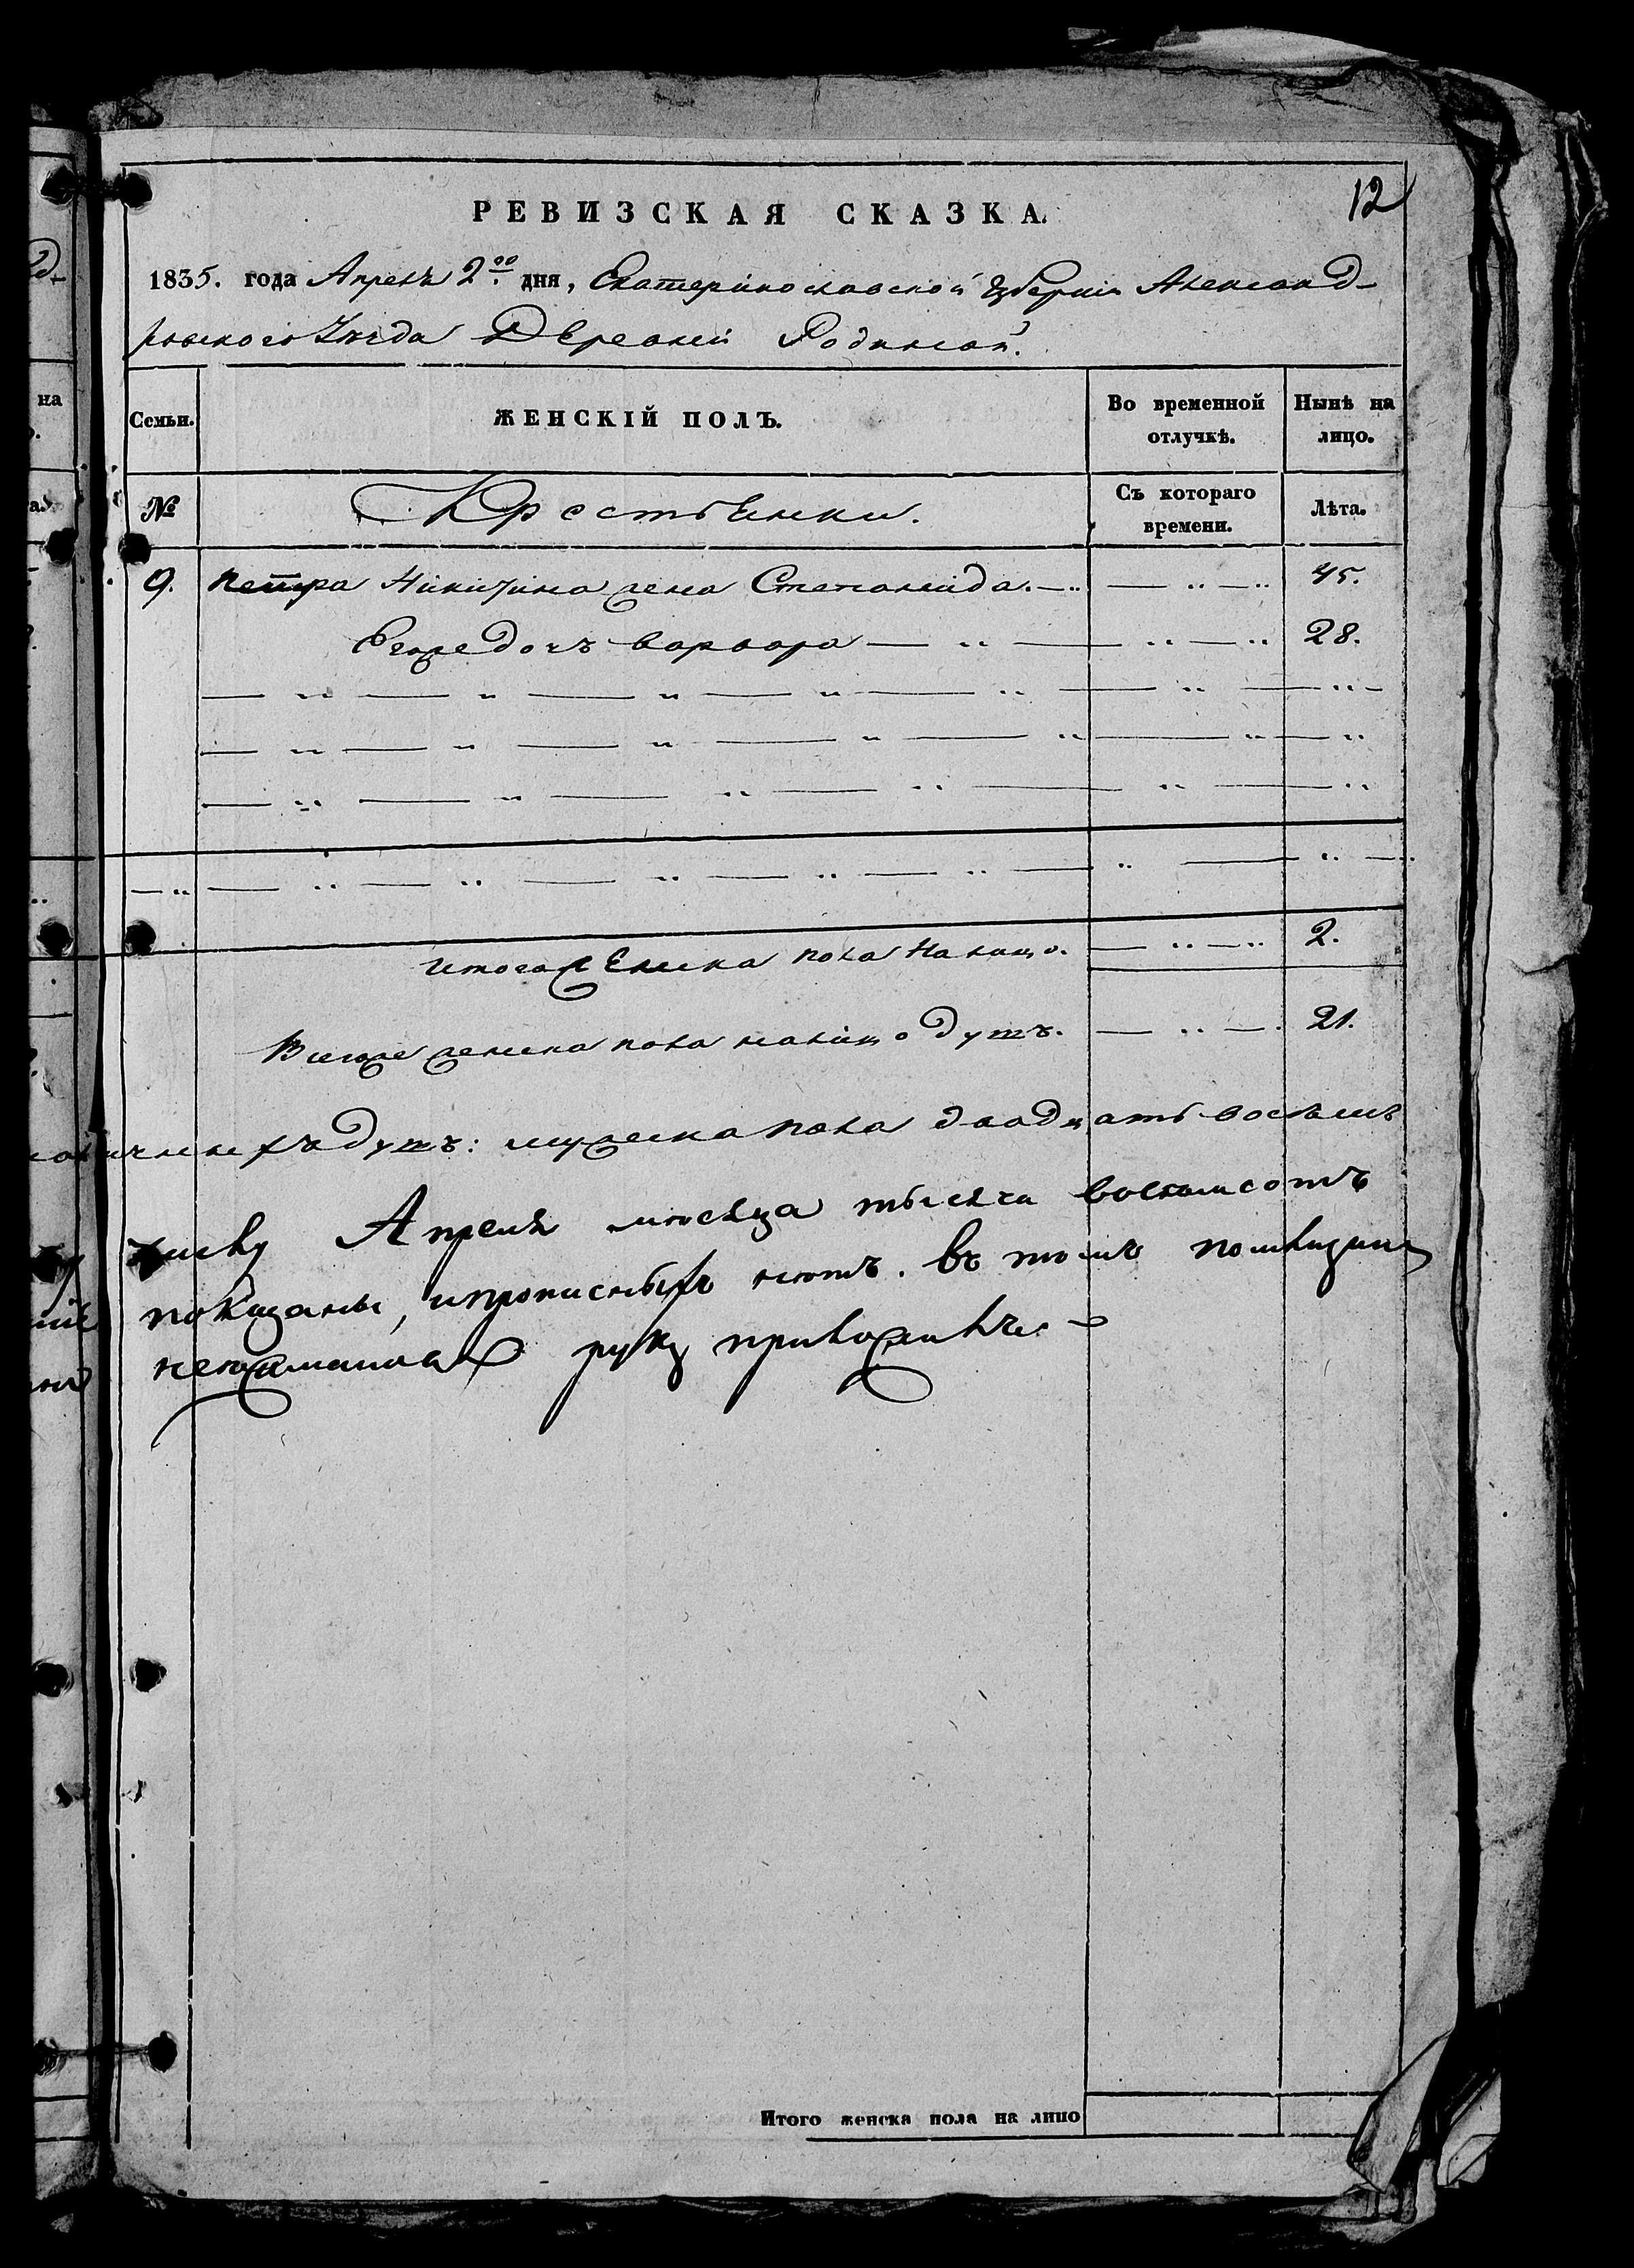 12
РЕВИЗСКАЯ СКАЗКА.
1835. года Апреля 2го дня, Екатеринославской губернии Александ-
ровского Уезда Деревни Родинсай.
Семьи. ЖЕНСКІЙ ПОЛЪ. Во временной отлучкѣ. Нынѣ на лицо.
№ Крестьянки. Съ котораго времени. Лѣта.
9. Петра Никитина жена Степанида. 45.
Егоже дочь варвара 28.
Итого женска пола на лицо. 2.
Всего женска пола на лицо душъ. 21.
душъ: мужеска пола двадцать восемь
Апреля месяца тысяча восемсотъ
показаны, и прописныхъ нетъ. Въ томъ
руку приложилъ
Итого женска пола на лицо